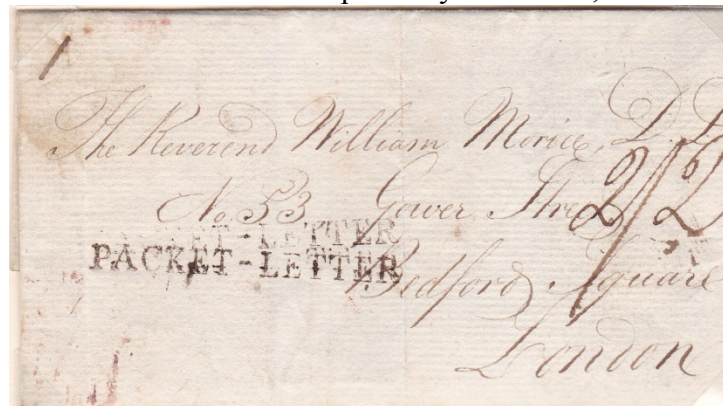 The Reverend William Morice, D.D
No. 53 Gower Stre
2/2
PACKET-LETTER
PACKET-LETTER
Bedford Square
London